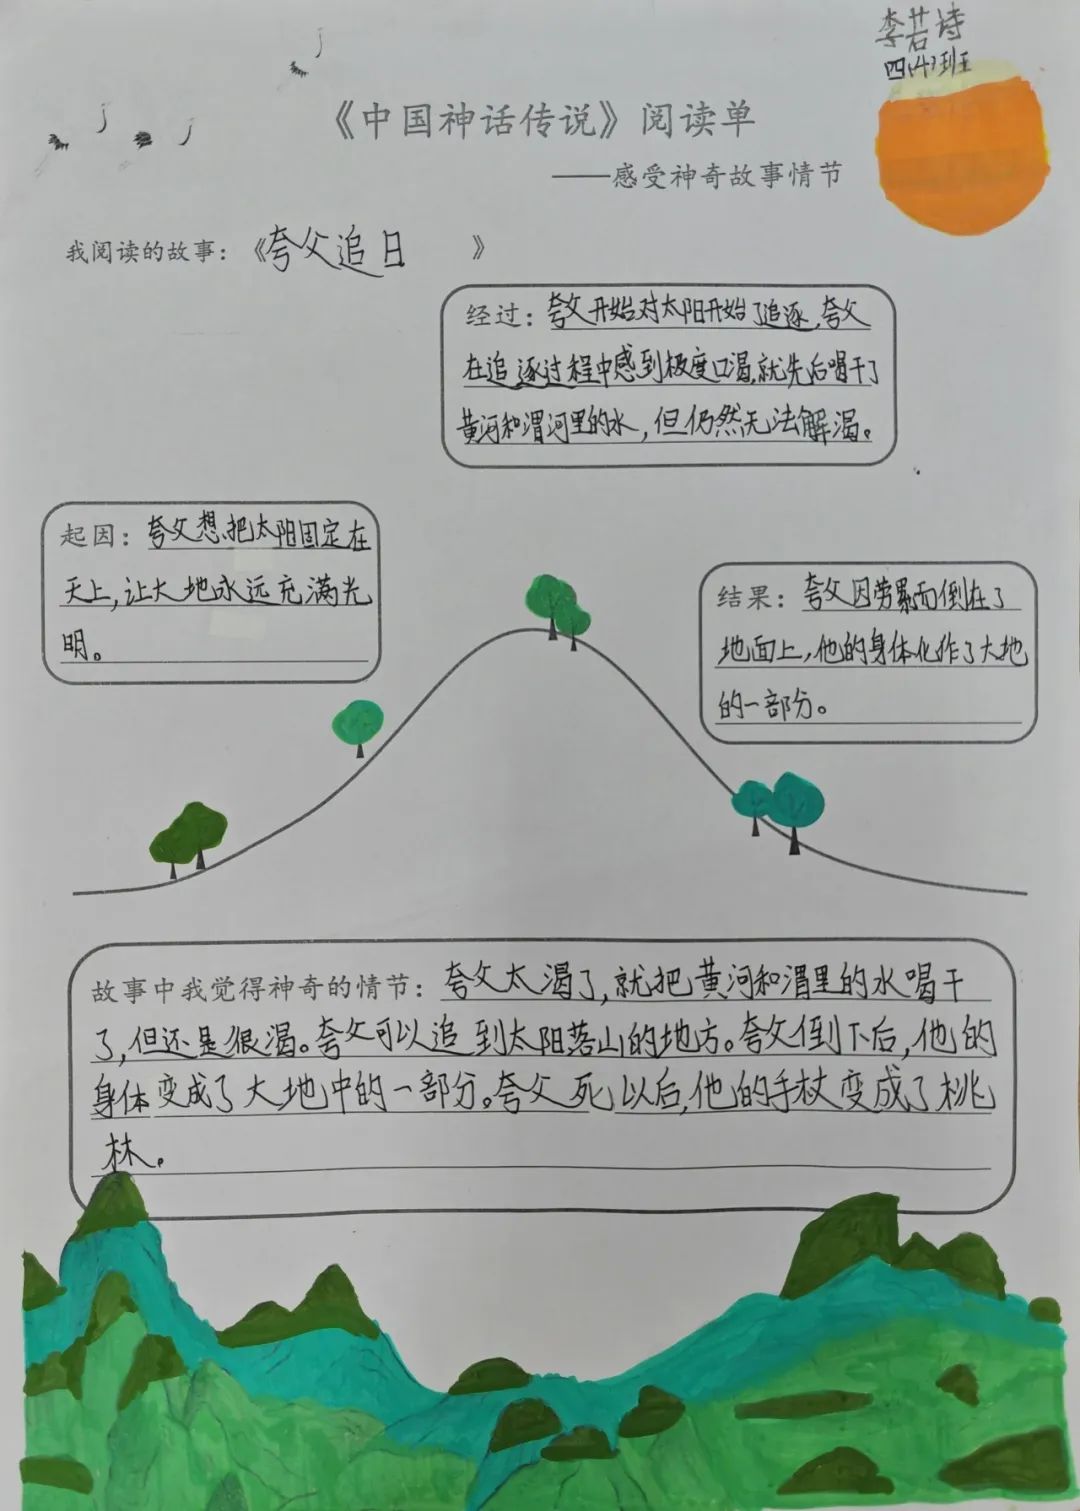 李若诗
四(4)班
《中国神话传说》阅读单
——感受神奇故事情节
我阅读的故事：《夸父追日》
经过：夸父开始对太阳开始了追逐，夸父
在追逐过程中感到极度口渴，就先后喝干了
黄河和渭河里的水，但仍然无法解渴。
起因：夸父想把太阳固定在
天上，让大地永远充满光
明。
结果：夸父因劳累而倒在了
地面上，他的身体化作了大地
的一部分。
故事中我觉得神奇的情节：夸父太渴了，就把黄河和渭里的水喝干
了，但还是很渴。夸父可以追到太阳落山的地方。夸父倒下后，他的
身体变成了大地中的一部分。夸父死以后，他的手杖变成了桃
林。